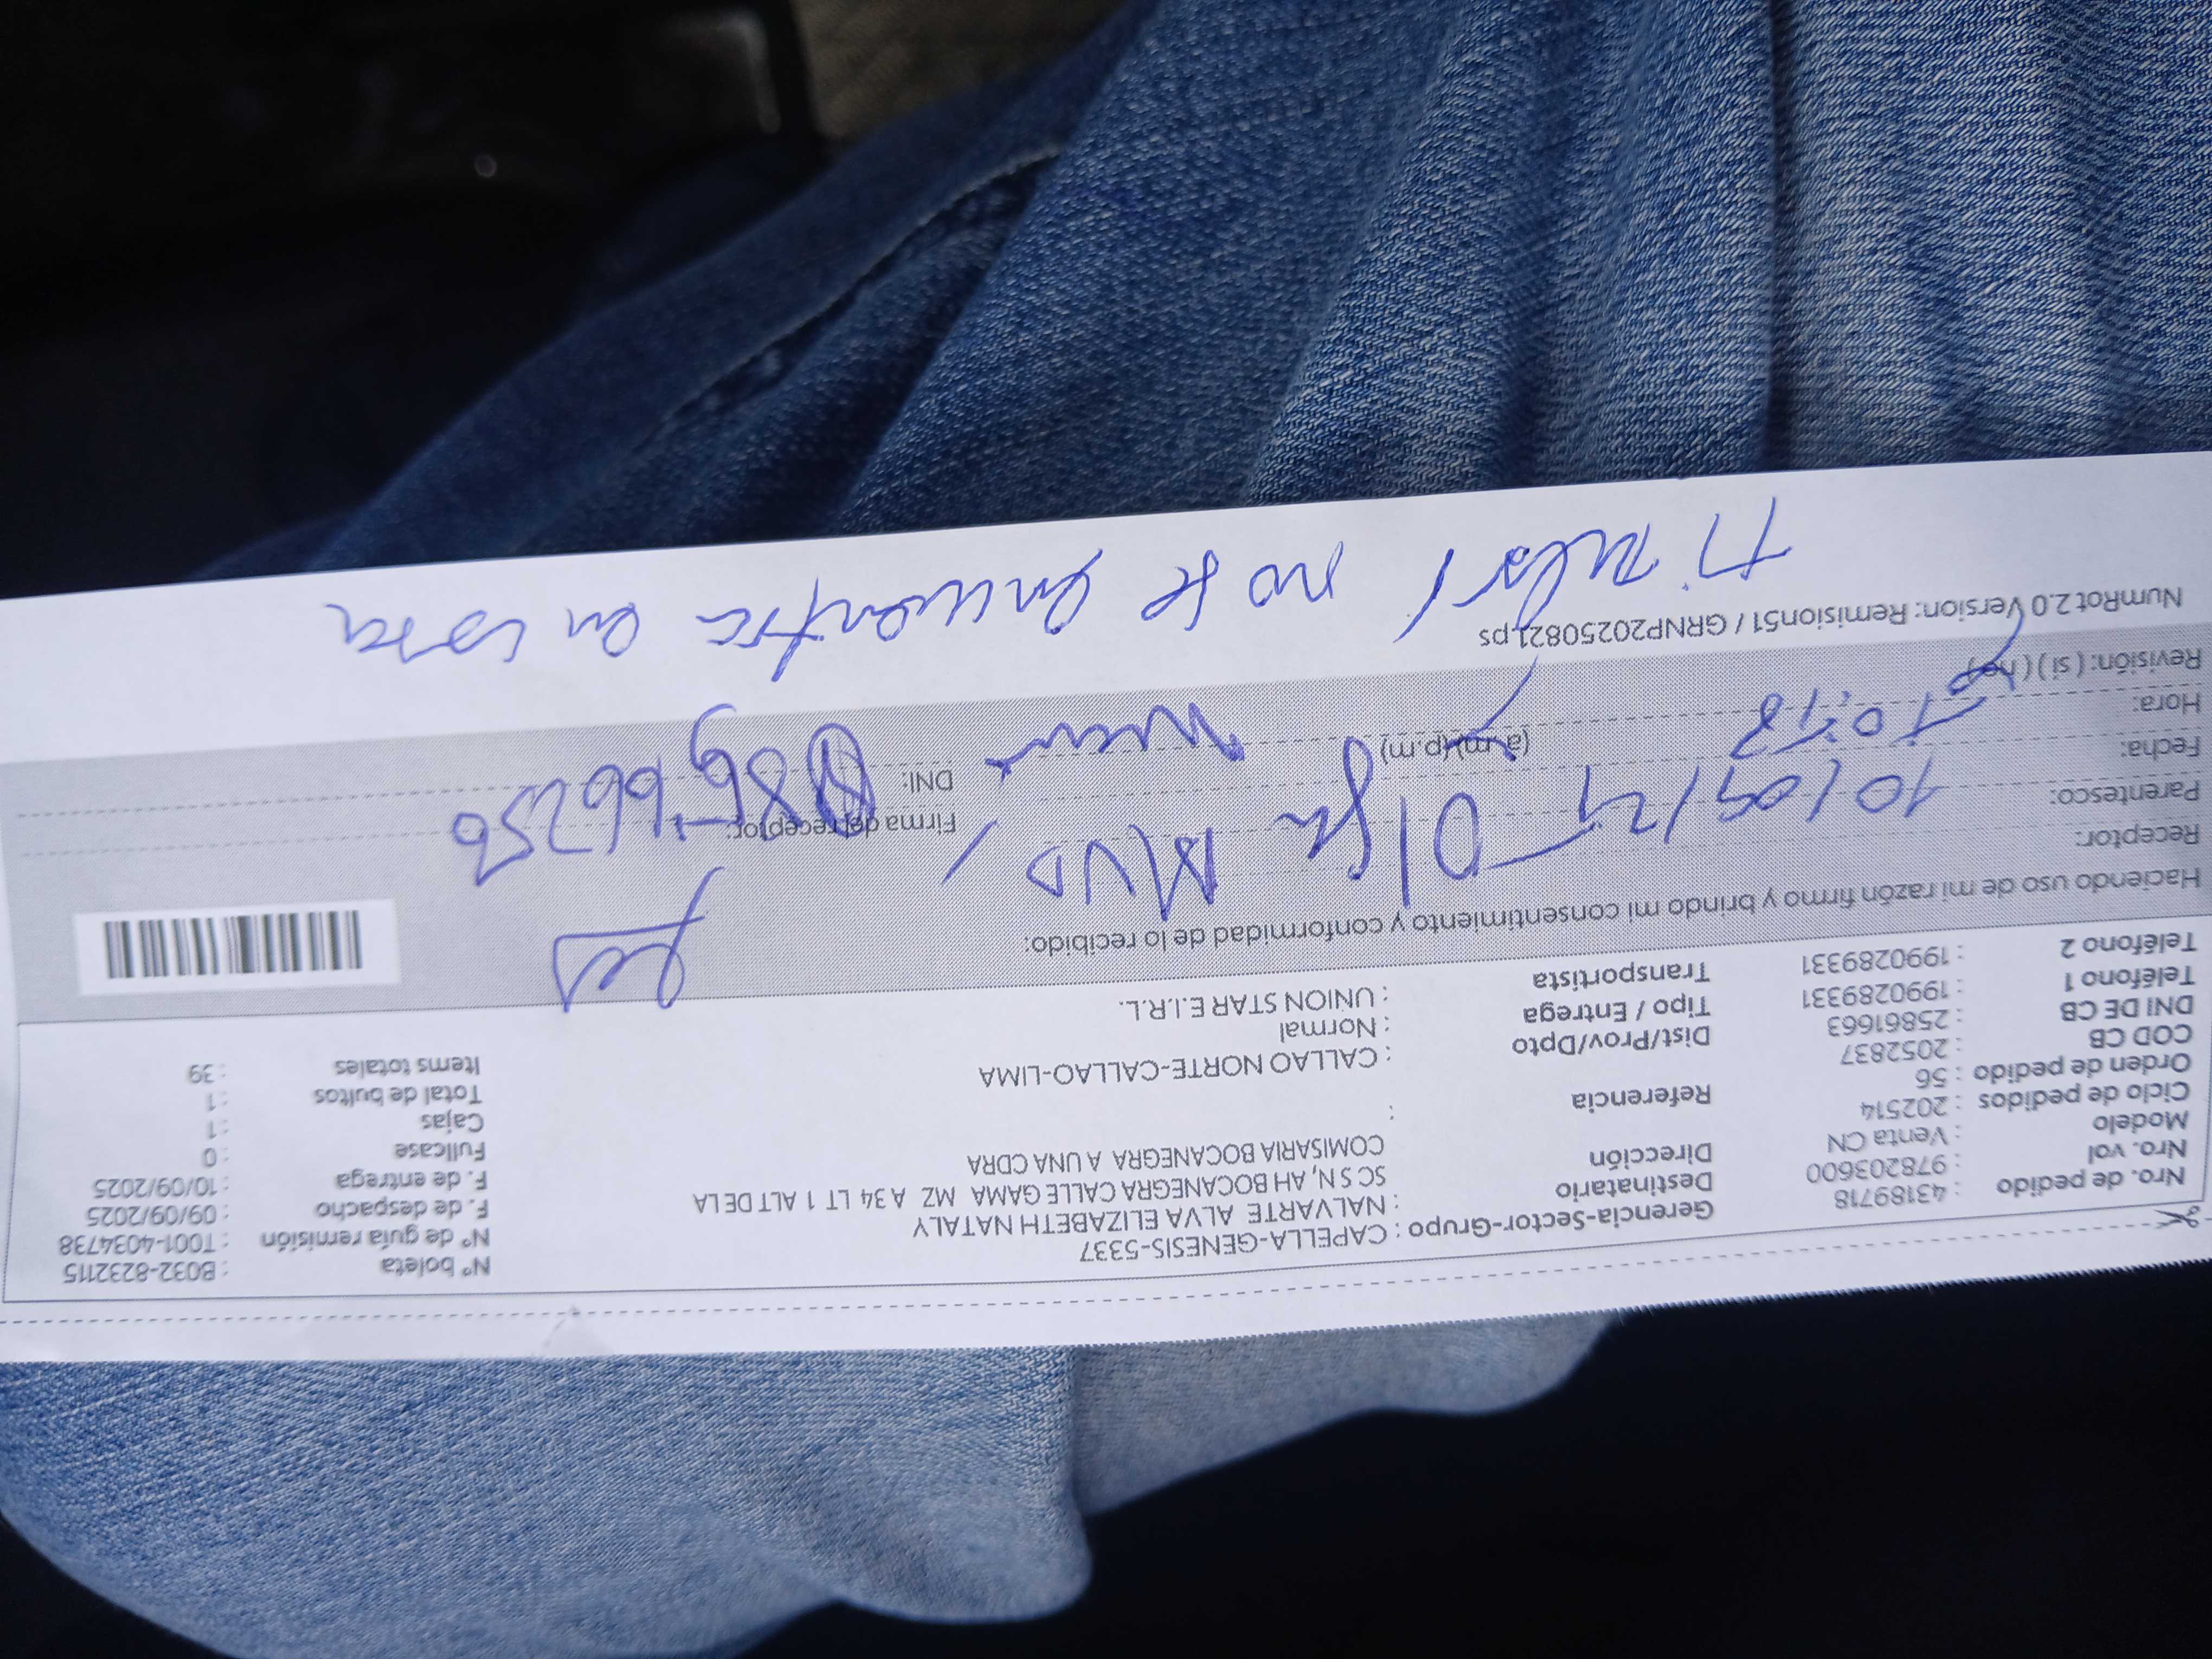 Nro. de pedido : 43189718
Nro. vol : 978203600
Modelo : Venta CN
Ciclo de pedidos : 202514
Orden de pedido : 56
COD CB : 2052837
DNI DE CB : 25861663
Teléfono 1 : 1990289331
Teléfono 2 : 1990289331
Gerencia-Sector-Grupo : CAPELLA-GENESIS-5337
Destinatario : NALVARTE ALVA ELIZABETH NATALY
Dirección SC S N, AH BOCANEGRA CALLE GAMA MZ A 34 LT 1 ALT DE LA
COMISARIA BOCANEGRA A UNA CDRA
Referencia :
Dist/Prov/Dpto : CALLAO NORTE-CALLAO-LIMA
Tipo / Entrega : Normal
Transportista : UNION STAR E.I.R.L.
N° boleta : B032-8232115
N° de guía remisión : T001-4034738
F. de despacho : 09/09/2025
F. de entrega : 10/09/2025
Fullcase : 0
Cajas : 1
Total de bultos : 1
Items totales : 39
Haciendo uso de mi razón firmo y brindo mi consentimiento y conformidad de lo recibido:
Receptor: Olga
Parentesco:
Fecha: 10/09/25
Hora: (a.m) (p.m)
Revisión: ( si ) ( no )
Firma del receptor:
DNI:
NumRot 2.0 Version: Remision51 / GRNP20250821.ps
no se encuentra en casa